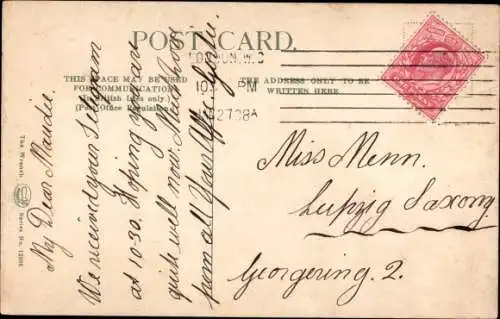 POST CARD.
THIS SPACE MAY BE USED
FOR COMMUNICATION
(In British Isles only.)
(Post Office Regulation.)
THE ADDRESS ONLY TO BE
WRITTEN HERE
LONDON, W.C
The Wrench
Series No.
My Dear Maudie.
We received your Telegram
at 10-30. Hoping you are
quite well now. Much love
from all Your Affec.
Miss Menn.
Leipzig Saxony
Georgering. 2.